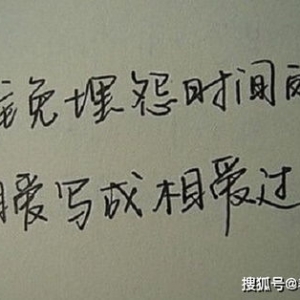 难免埋怨时间
相爱写成相爱过
搜狐号@